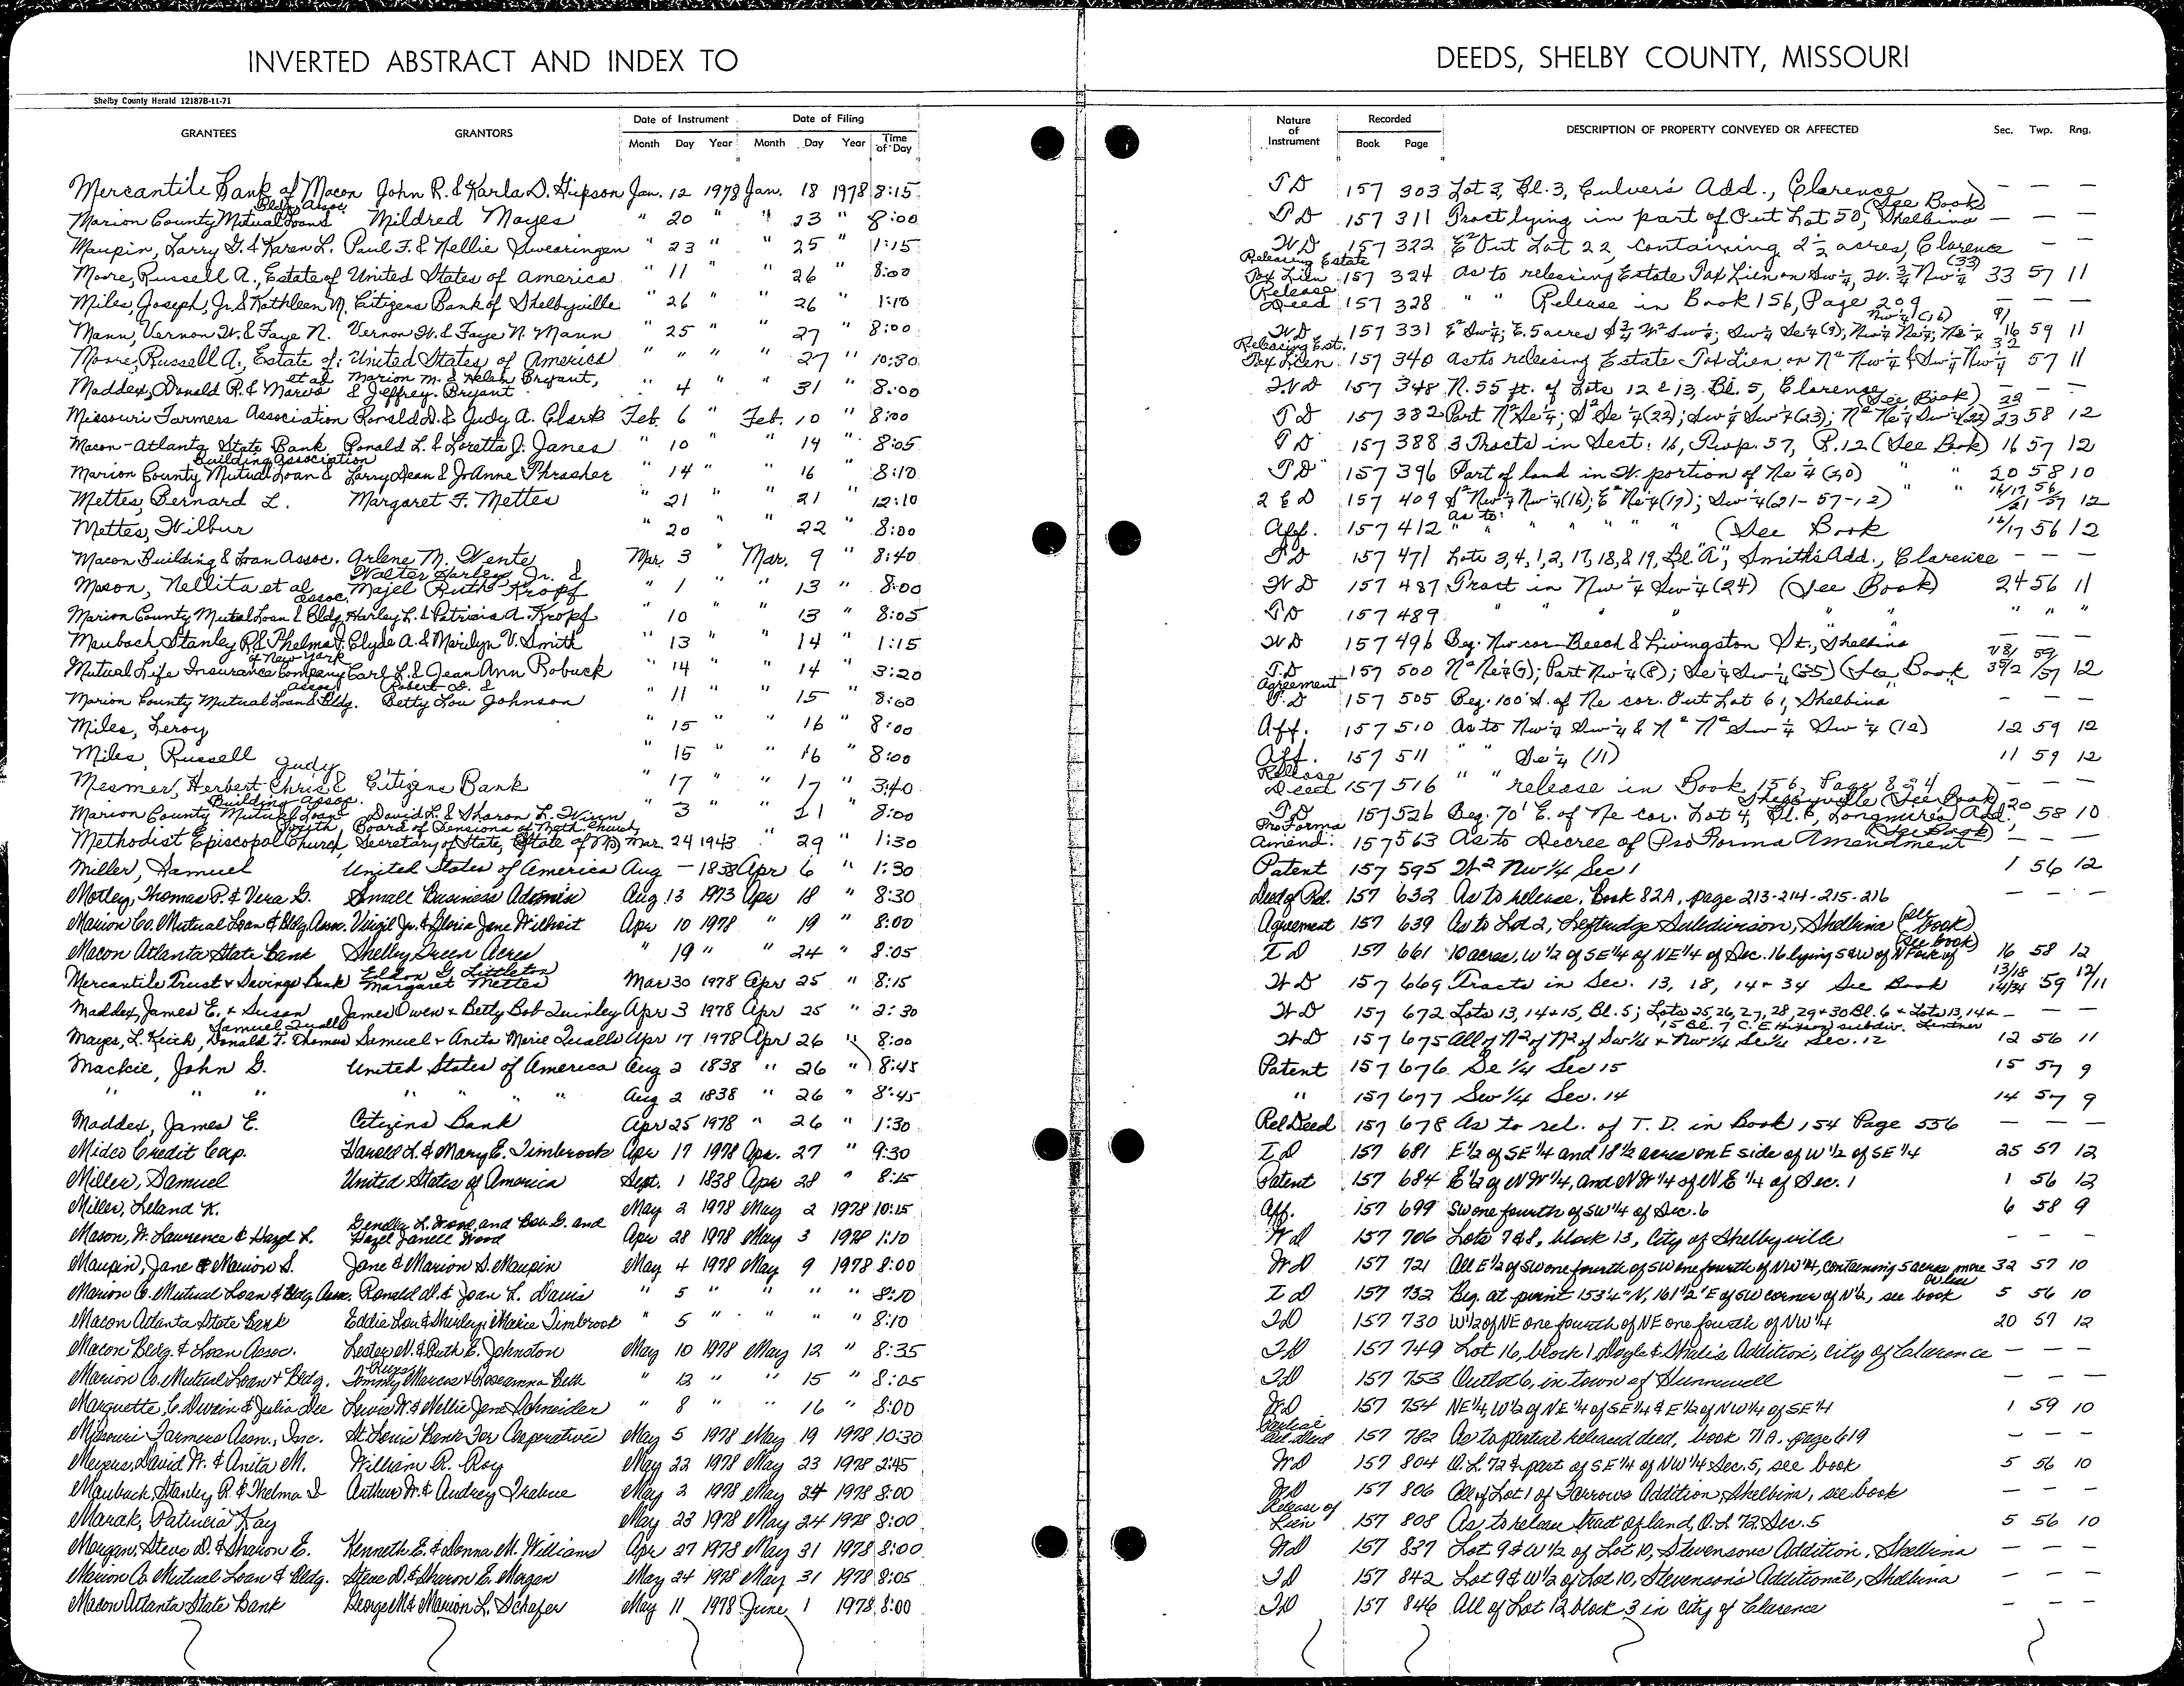 INVERTED ABSTRACT AND INDEX TO DEEDS, SHELBY COUNTY, MISSOURI
Shelby County Herald 12187B-11-71
GRANTEES GRANTORS Date of Instrument Date of Filing Nature of Instrument Recorded DESCRIPTION OF PROPERTY CONVEYED OR AFFECTED Sec. Twp. Rng.
Month Day Year Month Day Year Time of Day Book Page
Mercantile Bank of Macon John R. & Karla D. Gipson Jan. 12 1978 Jan. 18 1978 8:15 TD 157 303 Lot 3, Bl. 3, Culver's Add., Clarence — — —
Marion County Mutual Loan & Bldg. Assoc. Mildred Mayes " 20 " " 23 " 8:00 TD 157 311 Tract lying in part of Out Lot 50, Shelbina (See Book) — — —
Maupin, Larry G. & Karen L. Paul F. & Nellie Swearingen " 23 " " 25 " 1:15 WD 157 322 E² Out Lot 22, containing 2½ acres, Clarence — —
Moore, Russell A., Estate of United States of America " 11 " " 26 8:00 Releasing Estate Tax Lien 157 324 As to releasing Estate Tax Lien on Sw¼, W. ¾ Nw¼ (33) 33 57 11
Miles, Joseph, Jr. & Kathleen M. Citizens Bank of Shelbyville " 26 " " 26 " 1:10 Release Deed 157 328 " " Release in Book 156, Page 209 — — —
Mann, Vernon W. & Faye N. Vernon W. & Faye N. Mann " 25 " " 27 " 8:00 WD 157 331 16 59 11
Moore, Russell A., Estate of: United States of America " " " " 27 " 10:30 Releasing Est. Tax Lien 157 340 As to releasing Estate Tax Lien on N² Nw¼ & Sw¼ Nw¼ 32 57 11
Maddex, Donald R. & Marva et al Marion M. & Helen Bryant, & Jeffrey Bryant " 4 " 31 " 8:00 WD 157 348 N. 55 ft. of Lots 12 & 13, Bl. 5, Clarence — — —
Missouri Farmers Association Ronald D. & Judy A. Clark Feb. 6 " Feb. 10 " 8:00 TD 157 382 Part N² Se¼; S² Se¼(22); Sw¼ Sw¼(23); (See Book) 58 12
Macon-Atlanta State Bank Ronald L. & Loretta J. Janes " 10 " 14 " 8:05 TD 157 388 3 Tracts in Sect. 16, Twp. 57, R. 12 (See Book) 16 57 12
Marion County Mutual Loan & Building Association Larry Dean & JoAnne Thrasher " 14 " " 16 " 8:10 TD 157 396 Part of land in W. portion of Ne¼ (20) " " 20 58 10
Mettes, Bernard L. Margaret F. Mettes " 21 " 21 " 12:10 Q C D 157 409 S² Nw¼ Nw¼(16); E² Ne¼(17); Sw¼(21-57-12) " " 16/17 56 /21 57 12
Mettes, Wilbur " 20 " " 22 " 8:00 Aff. 157 412 As to: " " " " " (See Book 16/17 56 12
Macon Building & Loan Assoc. Arlene M. Wente Mar. 3 " Mar. 9 " 8:40 TD 157 471 Lots 3, 4, 1, 2, 17, 18, & 19, Bl. "A", Smith's Add., Clarence — — —
Mason, Nellita et al Walter Harley, Jr. & Majel Ruth Kropf " 1 " " 13 " 8:00 WD 157 487 Tract in Nw¼ Sw¼(24) (See Book) 24 56 11
Marion County Mutual Loan & Bldg. Assoc. Harley L. & Patricia A. Kropf " 10 " 13 " 8:05 TD 157 489 " " " " " " "
Maubach, Stanley R. & Thelma I. Clyde A. & Marilyn V. Smith " 13 " " 14 " 1:15 WD 157 496 Beg. Nw cor. Beech & Livingston St., Shelbina — — —
Mutual Life Insurance Company of New York Carl L. & Jean Ann Robuck " 14 " " 14 " 3:20 TD 157 500 12
Marion County Mutual Loan & Bldg. Assoc. Robert D. & Betty Lou Johnson " 11 " " 15 " 8:00 Agreement T.D 157 505 Beg. 100' S. of Ne cor. Out Lot 61, Shelbina — — —
Miles, Leroy " 15 " " 16 " 8:00 Aff. 157 510 As to Nw¼ Sw¼ & N² N² Sw¼ Sw¼ (12) 12 59 12
Miles, Russell " 15 " " 16 " 8:00 Aff. 157 511 " " Se¼ (11) 11 59 12
Mesmer, Herbert Chris & Judy Citizens Bank " 17 " " 17 " 3:40 Release Deed 157 516 " " release in Book 156, Page 824 — — —
Marion County Mutual Loan Building Assoc. David L. & Sharon L. " 3 " 21 " 8:00 TD 157 526 Beg. 70' E. of Ne cor. Lot 4, Bl. 6, Longmires Add., Shelbyville (See Book) 20 58 10
Methodist Episcopal Church, South Board of Pensions of Meth. Church Secretary of State, State of MO Mar. 24 1943 " 29 " 1:30 Pro Forma Amend. 157 563 As to Decree of Pro Forma Amendment (See Book) — — —
Miller, Samuel United States of America Aug — 1838 Apr 6 " 1:30 Patent 157 595 W² Nw¼ Sec 1 1 56 12
Motley, Thomas P. & Vera G. Small Business Adminis Aug 13 1973 Apr 18 " 8:30 Deed of Rel. 157 632 As to release, Book 82A, page 213-214-215-216 — — —
Marion Co. Mutual Loan & Bldg Assn. Virgil Jr. & Gloria Jane Wilhoit Apr 10 1978 " 19 " 8:00 Agreement 157 639 As to Lot 2, Leftridge Subdivision, Shelbina (see book)
Macon Atlanta State Bank Shelby Green Acres " 19 " " 24 " 8:05 T D 157 661 10 acres, W ½ of SE ¼ of NE ¼ of Sec. 16 lying S & W of N Fork of (see book) 16 58 12
Mercantile Trust & Savings Bank Eldon G. Littleton Margaret Mettes Mar 30 1978 Apr 25 " 8:15 WD 157 669 Tracts in Sec. 13, 18, 14 + 34 See Book 13/18 14/34 59 12/11
Maddex, James E. + Susan James Owen + Betty Bob Quinley Apr 3 1978 Apr 25 " 2:30 WD 157 672 Lots 13, 14 + 15, Bl. 5; Lots 25, 26, 27, 28, 29 + 30 Bl. 6 + Lots 13, 14 + 15 Bl. 7 C. E. Hixson subdiv. Lentner — — —
Mayes, L. Keith, Donald T. Thomas Samuel Qualls Samuel + Anita Marie Qualls Apr 17 1978 Apr 26 " 8:00 WD 157 675 All of N² of N² of Sw¼ + Nw¼ Se¼ Sec. 12 12 56 11
Mackie, John G. United States of America Aug 2 1838 " 26 " 8:45 Patent 157 676 Se ¼ Sec 15 15 57 9
" " " " " " " Aug 2 1838 " 26 " 8:45 " 157 677 Sw ¼ Sec. 14 14 57 9
Maddex, James E. Citizens Bank Apr 25 1978 " 26 " 1:30 Rel Deed 157 678 As to rel. of T. D. in Book 154 Page 556 — — —
Midco Credit Cap. Harold L. & Mary E. Timbrook Apr 17 1978 Apr. 27 " 9:30 T D 157 681 E½ of SE ¼ and 18½ acres on E side of W ½ of SE ¼ 25 57 12
Miller, Samuel United States of America Sept. 1 1838 Apr 28 " 8:15 Patent 157 684 E½ of NW¼, and NW ¼ of NE ¼ of Sec. 1 1 56 12
Miller, Leland K. May 2 1978 May 2 1978 10:15 Aff. 157 699 SW one fourth of SW ¼ of Sec. 6 6 58 9
Mason, W. Lawrence & Hazel L. Wood, and Bob G. and Hazel Janell Wood Apr 28 1978 May 3 1978 1:10 WD 157 706 Lots 7 & 8, block 13, City of Shelbyville — — —
Maupin, Jane & Marion S. Jane & Marion S. Maupin May 4 1978 May 9 1978 8:00 WD 157 721 All E ½ of SW one fourth of SW one fourth of NW ¼, containing 5 acres more or less 32 57 10
Marion Co. Mutual Loan & Bldg Assn. Ronald D. & Joan L. Davis " 5 " " " " 8:10 T D 157 732 Beg. at point 153'4" N, 161½' E of SW corner of N½, see book 5 56 10
Macon Atlanta State Bank Eddie Lou & Shirley Marie Timbrook " 5 " " " " 8:10 TD 157 730 W½ of NE one fourth of NE one fourth of NW ¼ 20 57 12
Macon Bldg. & Loan Assoc. Lester N. & Ruth E. Johnston May 10 1978 May 12 " 8:35 TD 157 749 Lot 16, block 1 Doyle & Addition, City of Clarence — — —
Marion Co. Mutual Loan & Bldg. Tommy Marcus & Roseanna Beth " 12 " " 15 " 8:05 TD 157 753 Outlot 6, in town of Hunnewell — — —
Marquette, C. Dwain & Julia Dee Lewis W. & Nellie Jane Schneider " 8 " " 16 " 8:00 WD 157 754 NE¼, W½ of NE ¼ of SE¼ & E½ of NW¼ of SE ¼ 1 59 10
Missouri Farmers Assn., Inc. St. Louis Bank For Cooperatives May 5 1978 May 19 1978 10:30 Partial Rel. Deed 157 782 As to partial released deed, book 71A, page 619
Meyers, David W. & Anita M. William R. Roy May 22 1978 May 23 1978 2:45 WD 157 804 O.L. 72 & part of SE ¼ of NW ¼ Sec. 5, see book 5 56 10
Maubach, Stanley R. & Thelma I Arthur W. & Audrey May 2 1978 May 24 1978 8:00 WD 157 806 All of Lot 1 of Farrows Addition, Shelbina, see book — — —
Marak, Patricia Kay May 23 1978 May 24 1978 8:00 Release of Lien 157 808 As to release tract of land, O.L. 72, Sec. 5 5 56 10
Morgan, Steve D. & Sharon E. Kenneth E. & Donna M. Williams Apr 27 1978 May 31 1978 8:00 WD 157 837 Lot 9 & W ½ of Lot 10, Stevensons Addition, Shelbina — — —
Marion Co Mutual Loan & Bldg. Steve D. & Sharon E. Morgan May 24 1978 May 31 1978 8:05 TD 157 842 Lot 9 & W ½ of Lot 10, Stevenson's Addition, Shelbina — — —
Macon Atlanta State Bank George M & Marion L. Schafer May 11 1978 June 1 1978 8:00 TD 157 846 All of Lot 12 block 3 in City of Clarence — — —